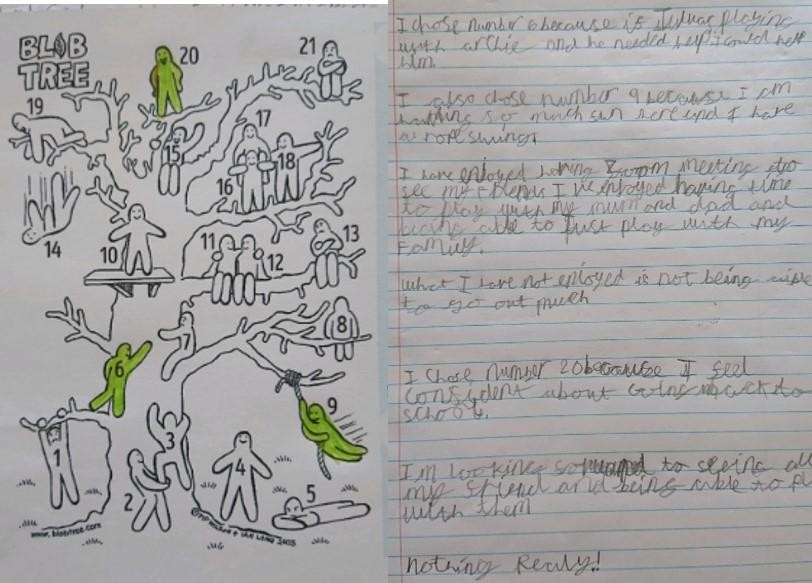 BLOB
TREE
20
21
19
17
15
18
16
14
10
11
13
12
8
7
6
9
3
1
4
2
5
www.blobtree.com
I chose number 6 because is I was playing
with archie and he needed help I could help
him.
I also chose number 9 because I am
having so much fun here and I have
a rope swing.
I have enjoyed having zoom meeting to
see my friends I've enjoyed having time
to play with my mum and dad and
being able to just play with my
Family.
what I have not enjoyed is not being able
to go out much
I chose number 20 because I feel
confident about going back to
school.
I'm looking forward to seeing all
my friend and being able to pl
with them
nothing Really!